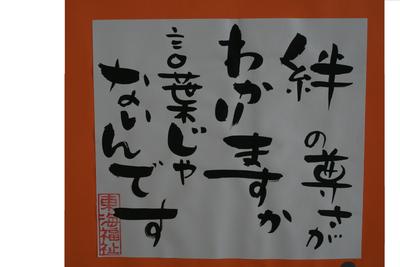 絆の尊さが
わかりますか
言葉じゃ
ないんです
東海福祉